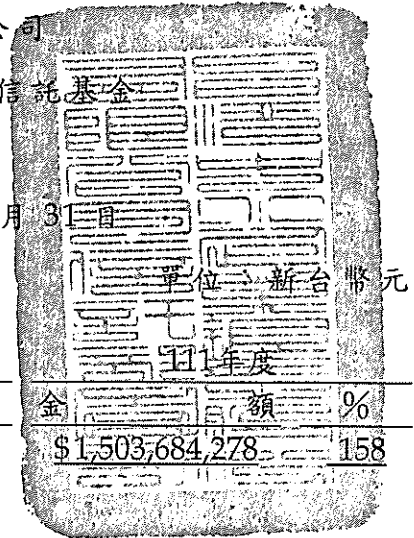 公司
信託基金
月 31 日
單位：新台幣元
111年度
金 額 %
$1,503,684,278 158